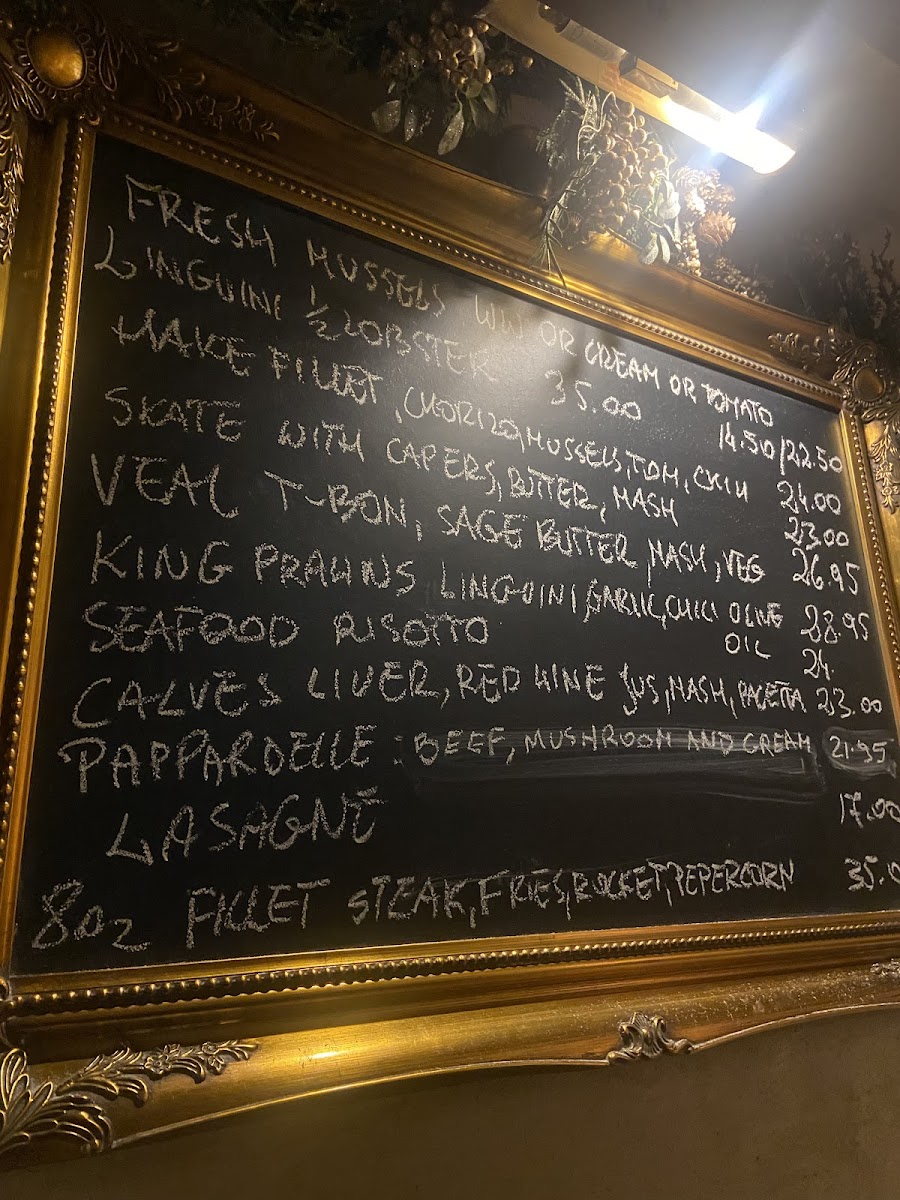 FRESH MUSSELS WW OR CREAM OR TOMATO 14.50/22.50
LINGUINI 1/2 LOBSTER 35.00
HAKE FILLET, CHORIZO, MUSSELS, TOM, CHILI 24.00
SKATE WITH CAPERS, BUTTER, MASH 23.00
VEAL T-BON, SAGE BUTTER, MASH, VEG 26.95
KING PRAWNS LINGUINI, GARLIC, CHILI OLIVE OIL 28.95
SEAFOOD RISOTTO 24.
CALVES LIVER, RED WINE JUS, MASH, PACETTA 23.00
PAPPARDELLE: BEEF, MUSHROOM AND CREAM 21.95
LASAGNE 17.00
8oz FILLET STEAK, FRIES, ROCKET, PEPERCORN 35.0